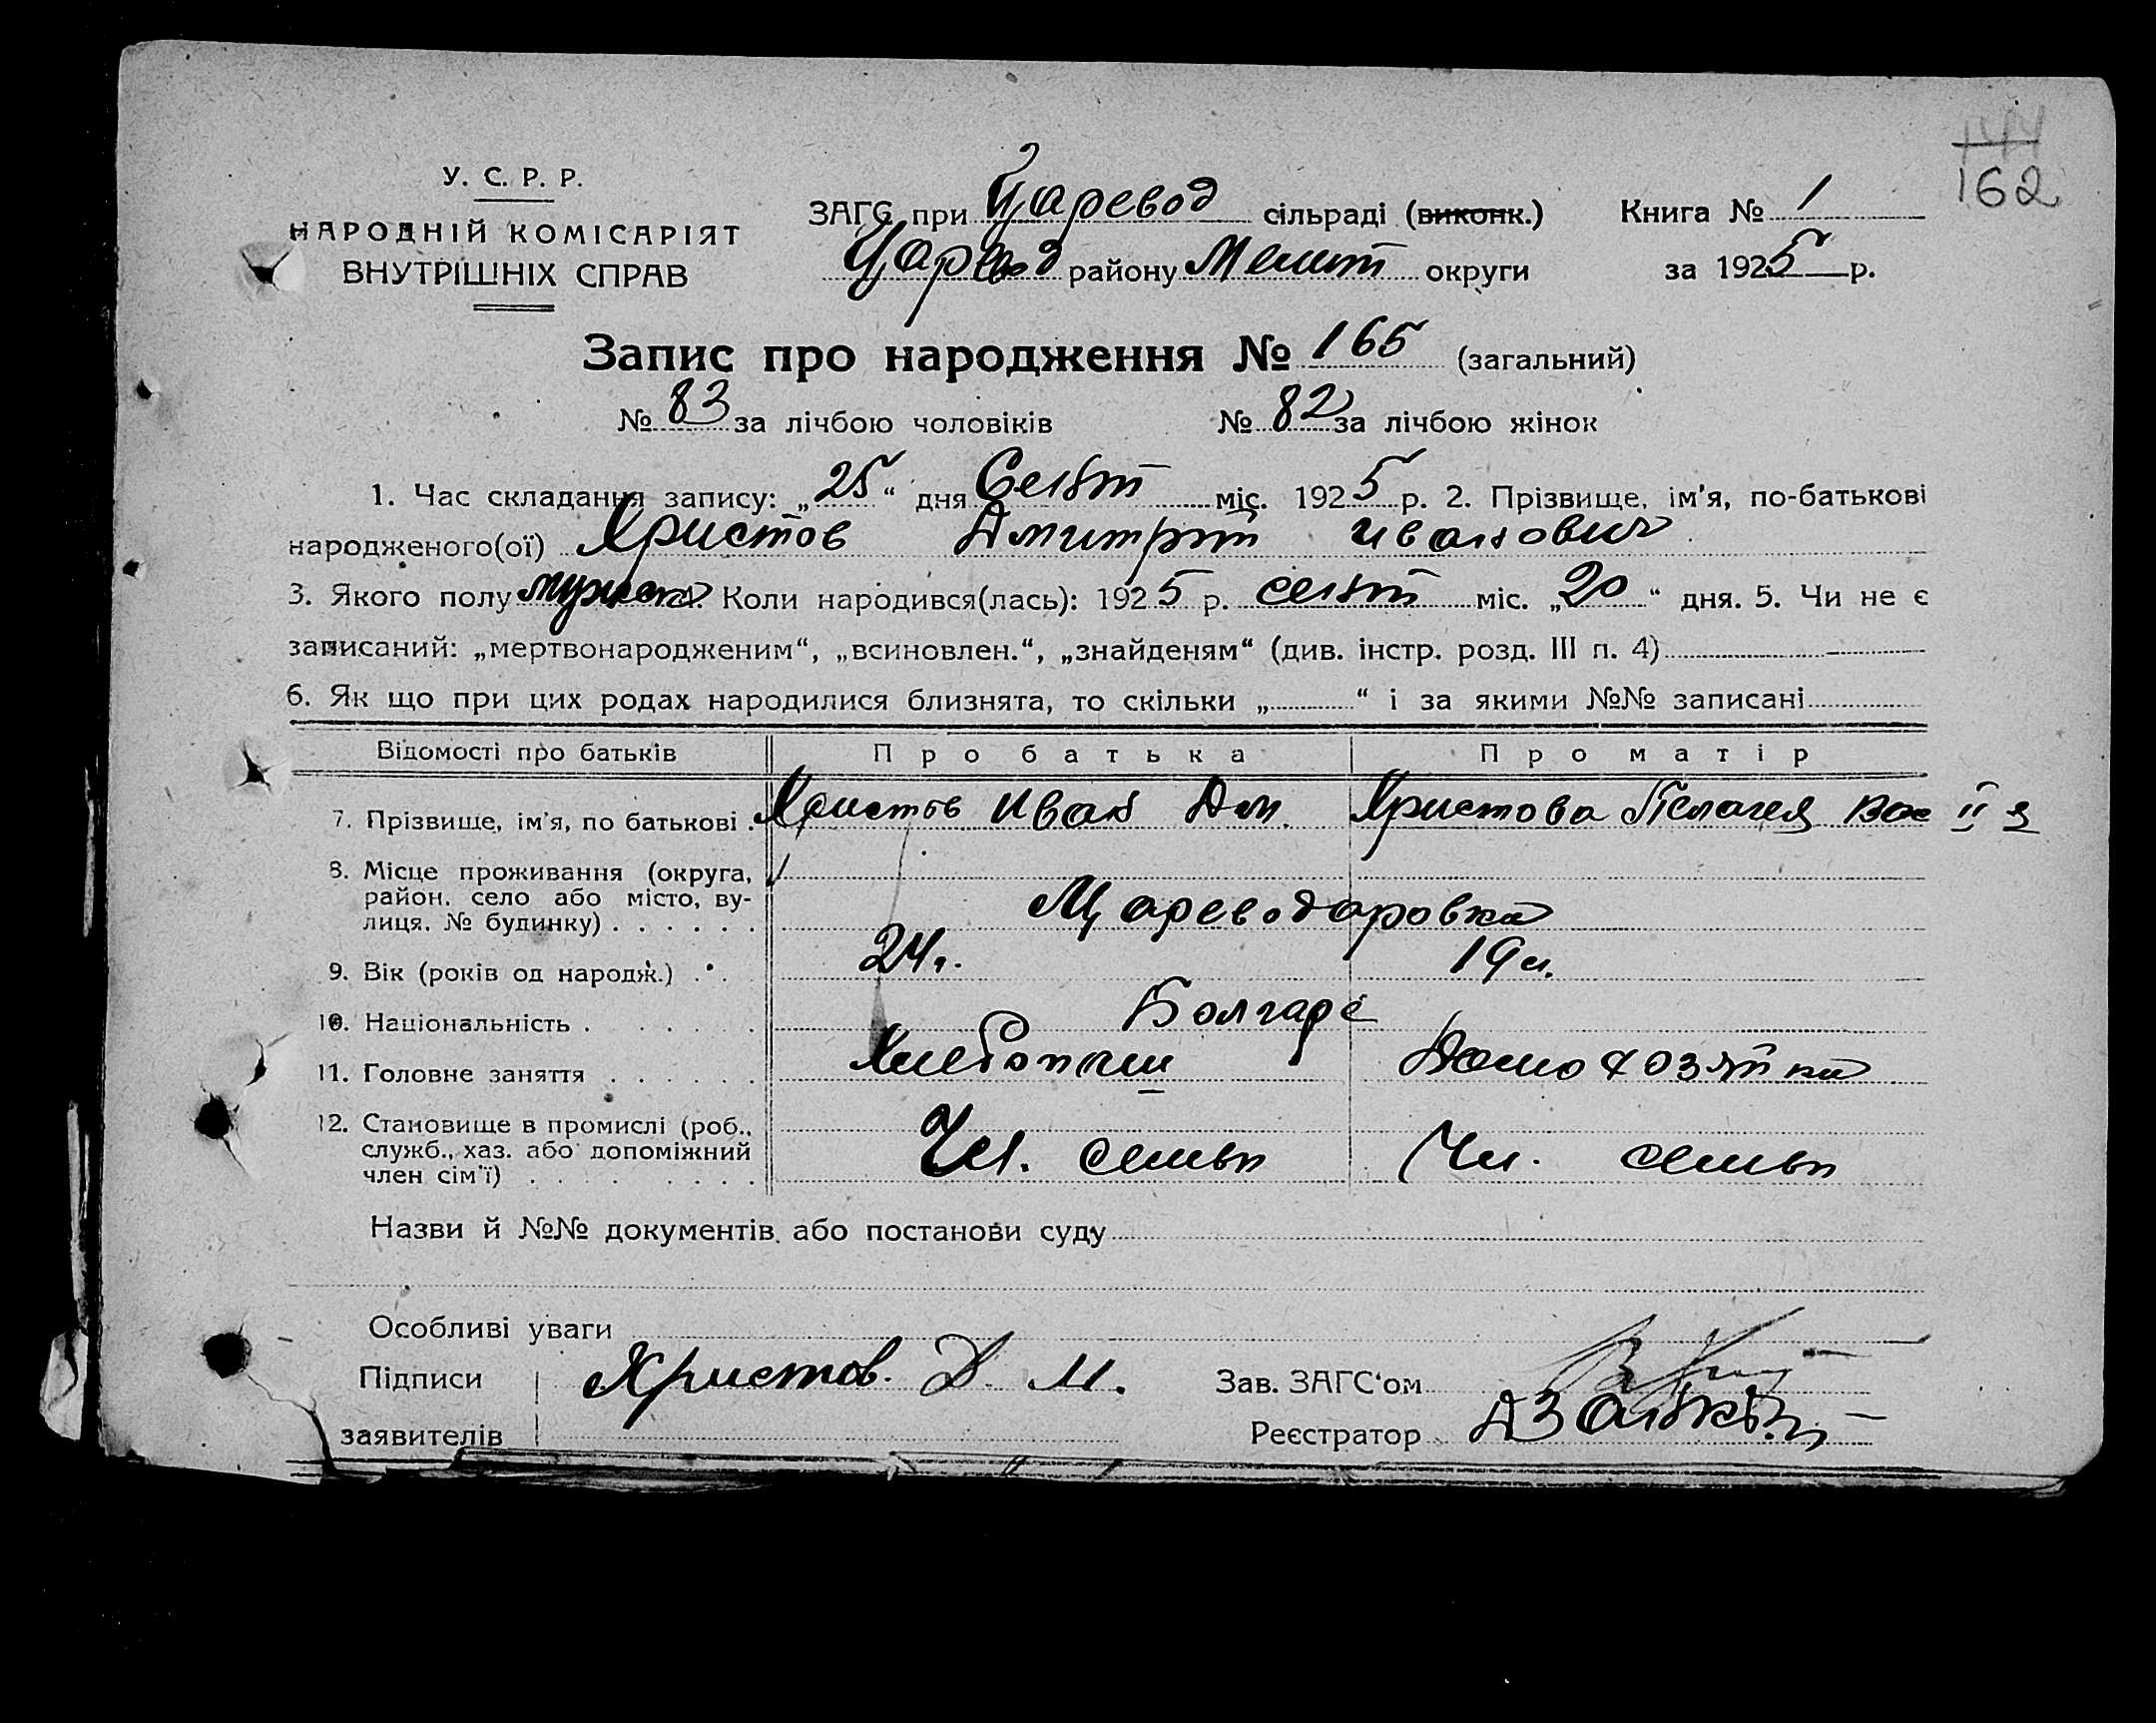 144
162
У. С. Р. Р.
НАРОДНІЙ КОМІСАРІЯТ
ВНУТРІШНІХ СПРАВ
ЗАГС при Царевод сільраді (виконк.) Книга № 1
Царевод району Мелит округи за 1925 р.
Запис про народження № 165 (загальний)
№ 83 за лічбою чоловіків № 82 за лічбою жінок
1. Час складання запису: „25“ дня Сент міс. 1925 р. 2. Прізвище, ім'я, по-батькові
народженого(ої) Христов Дмитрий Иванович
3. Якого полу мужск 4. Коли народився(лась): 1925 р. сент міс. „20“ дня. 5. Чи не є
записаний: „мертвонародженим“, „всиновлен.“, „знайденям“ (див. інстр. розд. III п. 4)
6. Як що при цих родах народилися близнята, то скільки „ “ і за якими №№ записані
Відомості про батьків Про батька Про матір
7. Прізвище, ім'я, по батькові . Христов Иван Дм. Христова Пелагея Вас II я
8. Місце проживання (округа,
район, село або місто, ву-
лиця, № будинку) . . . . . . Цареводаровка
9. Вік (років од народж.) . . 24 л. 19 л.
10. Національність . . . . . Болгаре
11. Головне заняття . . . . . . Хлебопаш Домохозяйка
12. Становище в промислі (роб.,
служб., хаз. або допоміжний
член сім'ї) . . . . . . . . Чл. семьи Чл. семьи
Назви й №№ документів, або постанови суду
Особливі уваги
Підписи Христов. Д. М. Зав. ЗАГС'ом
заявителів Реєстратор